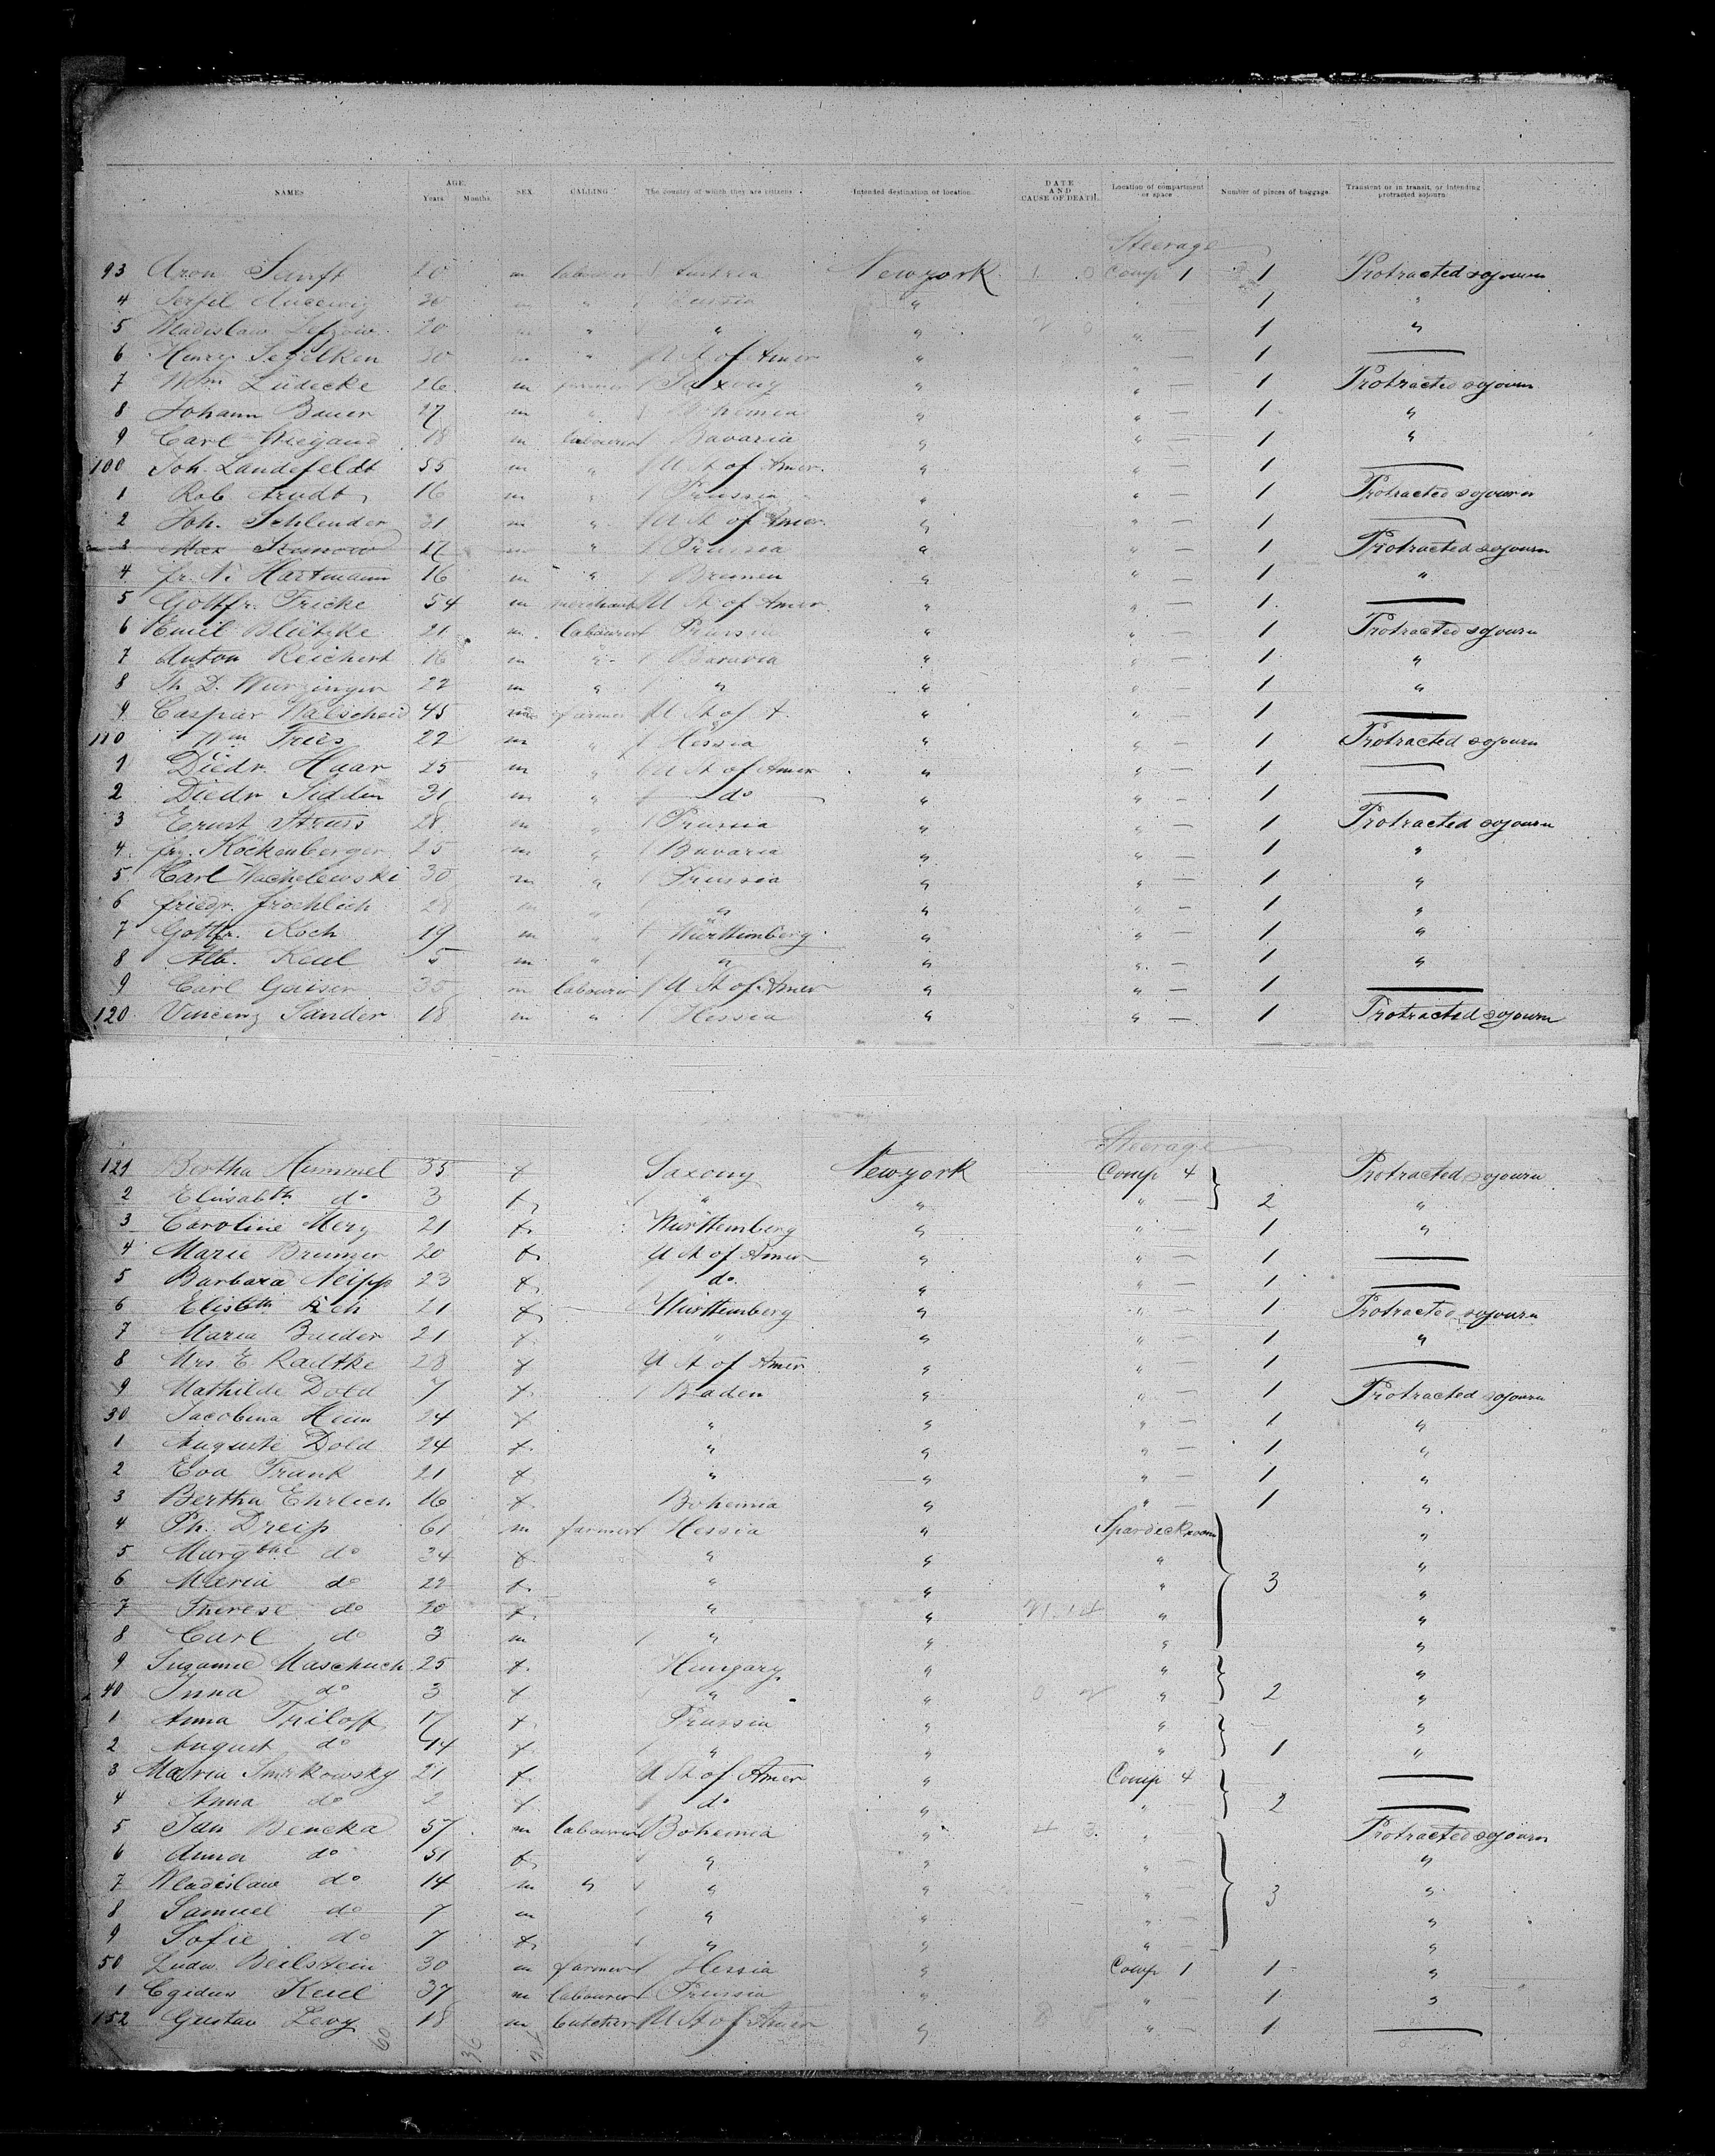 NAMES AGE. Years. Months. SEX. CALLING. The country of which they are citizens. Intended destination or location. DATE AND CAUSE OF DEATH. Location of compartment or space Number of pieces of baggage. Transient or in transit, or intending protracted sojourn
Steerage
93 Aron Sanft 20 m labourer Austria Newyork Comp 1 1 Protracted sojourn
4 30 m " Russia " " — 1 "
5 Wladislaw 20 m " " " " — 1 "
6 Henry Segelken 30 m " U St of Amer " " — 1 —
7 Wm Lüdecke 26 m farmer Saxony " " — 1 Protracted sojourn
8 Johann Bauer 27 m " Bohemia " " — 1 "
9 Carl Wiegand 18 m labourer Bavaria " " — 1 "
100 Joh. Landefeldt 55 m " U St of Amer. " " — 1 —
1 Rob Arndt 16 m " Prussia " " — 1 Protracted sojourn
2 Joh. Schlender 31 m " U St of Amer. " " — 1 —
3 Max 17 m " Prussia " " — 1 Protracted sojourn
4 fr. N. Hartmann 16 m " Bremen " " — 1 "
5 Gottfr. Fricke 54 m merchant U St of Amer. " " — 1 —
6 Emil 21 m labourer Prussia " " — 1 Protracted sojourn
7 Anton Reichert 16 m " Bavaria " " — 1 "
8 Th. D. Wurzinger 22 m " " " " — 1 "
9 Caspar Walscheid 45 m farmer U St of A. " " — 1 —
110 Wm Fries 22 m " Hessia " " — 1 Protracted sojourn
1 Diedr. Haar 25 m " U St of Amer " " — 1 —
2 Diedr Sidden 31 m " do " " — 1 —
3 Ernst Struss 28 m " Prussia " " — 1 Protracted sojourn
4 Köckenberger 25 m " Bavaria " " — 1 "
5 Carl Wachelewski 30 m " Prussia " " — 1 "
6 friedr. froehlich 28 m " " " " — 1 "
7 Gottfr. Koch 19 m " Württemberg " " — 1 "
8 Alb. Keul 5 m " " " " — 1 "
9 Carl Gaiser 35 m labourer U St of Amer " " — 1 —
120 Vincenz Sander 18 m " Hessia " " — 1 Protracted sojourn
Steerage
121 Bertha Hummel 35 f Saxony Newyork Comp 4 Protracted sojourn
2 Elisabth do 3 f " " " — 2 "
3 Caroline Merz 21 f Württemberg " " — 1 "
4 Marie Brunner 20 f U St of Amer " " — 1 —
5 Barbara Neipp 23 f do. " " — 1 —
6 Elisbth 21 f Württemberg " " — 1 Protracted sojourn
7 Maria Bueder 21 f " " " — 1 "
8 Mrs E. Radtke 28 f U St of Amer " " — 1 —
9 Mathilde Dold 7 f Baden " " — 1 Protracted sojourn
30 Jacobina Heim 24 f " " " — 1 "
1 Auguste Dold 24 f " " " — 1 "
2 Eva Frank 21 f " " " — 1 "
3 Bertha Ehrlich 16 f Bohemia " " — 1 "
4 Ph. Dreis 61 m farmer Hessia " Spardeckroom "
5 Margthe do 34 f " " " "
6 Maria do 22 f " " " 3 "
7 Therese do 20 f " " " "
8 Carl do 3 m " " " "
9 Susanne Maschuch 25 f Hungary " " "
40 Anna do 3 f " " " 2 "
1 Anna Triloff 17 f Prussia " " "
2 August do 14 f " " " 1 "
3 Maria Smirkowsky 21 f U St of Amer " Comp 4 —
4 Anna do 2 f do " " — 2 —
5 Jan Bencka 57 m labourer Bohemia " " — Protracted sojourn
6 Anna do 51 f " " " — "
7 Wladislaw do 14 m " " " " — 3 "
8 Samuel do 7 m " " " — "
9 Sofie do 7 f " " " — "
50 Ludw. Beilstein 30 m farmer Hessia " Comp 1 1 "
1 Egidius Keul 37 m labourer Prussia " " — 1 "
152 Gustav Levy 18 m butcher U St of Amer " " — 1 —
60 36